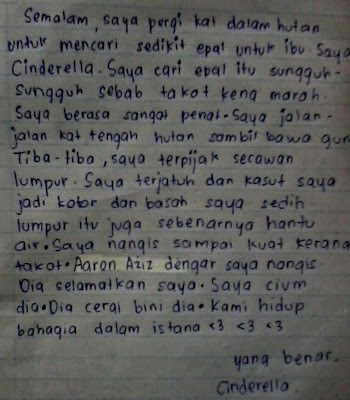 Semalam, saya pergi kat dalam hutan
untuk mencari sedikit epal untuk ibu. Saya
Cinderella. Saya cari epal itu sungguh-
sungguh sebab takot kena marah.
Saya berasa sangat penat. Saya jalan-
jalan kat tengah hutan sambil bawa gun
Tiba-tiba, saya terpijak secawan
lumpur. Saya terjatuh dan kasut saya
jadi kotor dan basah. saya sedih
lumpur itu juga sebenarnya hantu
air. Saya nangis sampai kuat kerana
takot. Aaron Aziz dengar saya nangis.
Dia selamatkan saya. Saya cium
dia. Dia cerai bini dia. Kami hidup
bahagia dalam istana <3 <3 <3
yang benar,
Cinderella.